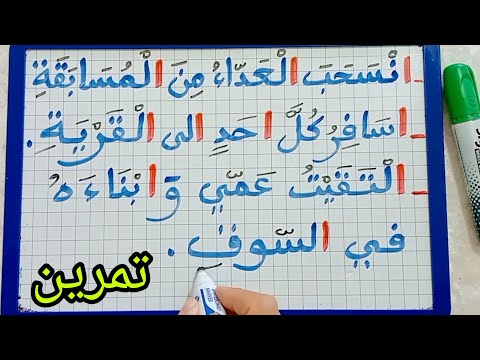 - انْسَحَبَ الْعَدّاءُ مِنَ الْمُسَابَقَةِ
- اسَافِرُ كُلَّ احَدٍ الى الْقَرْيَةِ.
- الْتَقَيْتُ عَمّي وَ ابْنَاءَهُ
في السّوق.
تمرين